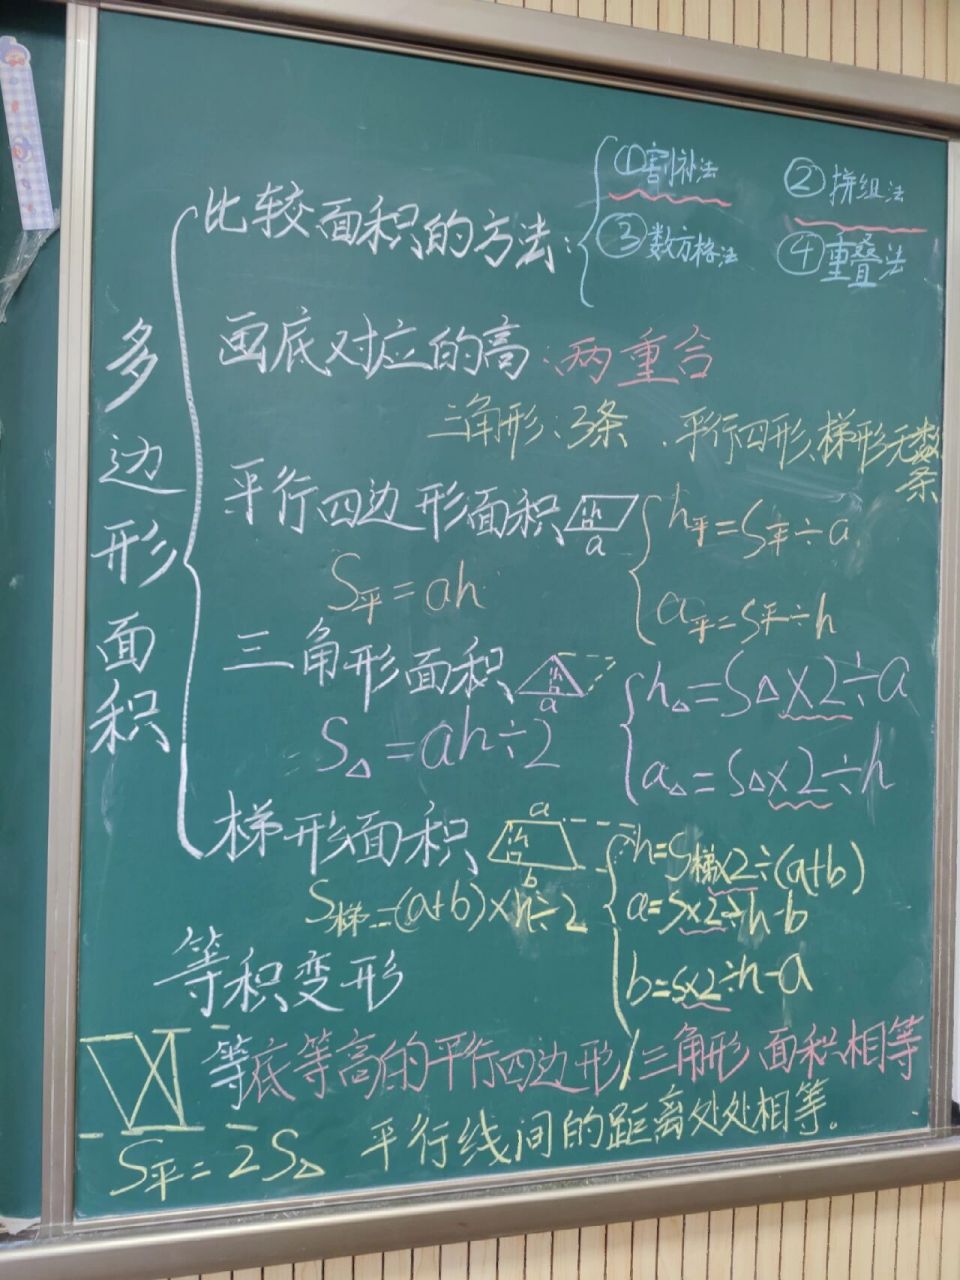 多边形面积
比较面积的方法：
①割补法 ②拼组法
③数方格法 ④重叠法
画底对应的高：两重合
三角形：3条、平行四形、梯形无数条
平行四边形面积
h
a
S平=ah
h平=S平÷a
a平=S平÷h
三角形面积
h
a
S△=ah÷2
h△=S△×2÷a
a△=S△×2÷h
梯形面积
a
h
b
S梯=(a+b)×h÷2
h=S梯×2÷(a+b)
a=S×2÷h-b
b=S×2÷h-a
等积变形
等底等高的平行四边形/三角形面积相等
S平=2S△ 平行线间的距离处处相等。